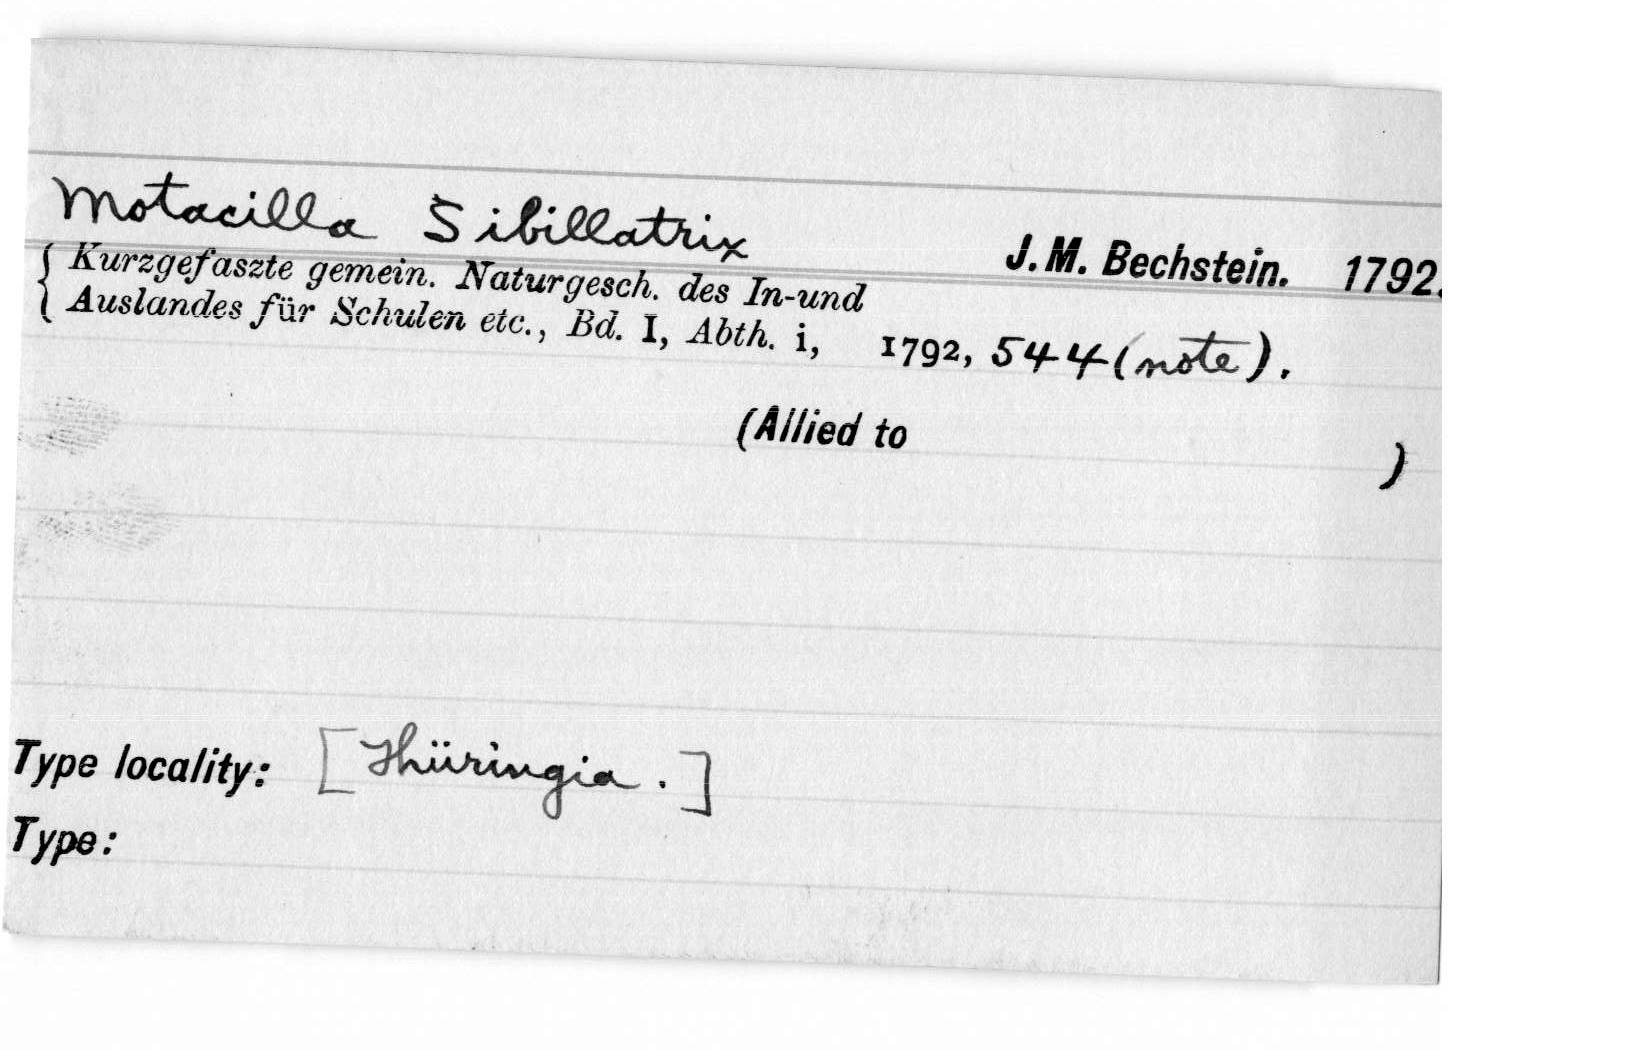 Motacilla Sibillatrix J. M. Bechstein. 1792.
Kurzgefaszte gemein. Naturgesch. des In-und
Auslandes für Schulen etc., Bd. I, Abth. i, 1792, 544 (note).
(Allied to )
Type locality: [Thüringia.]
Type: